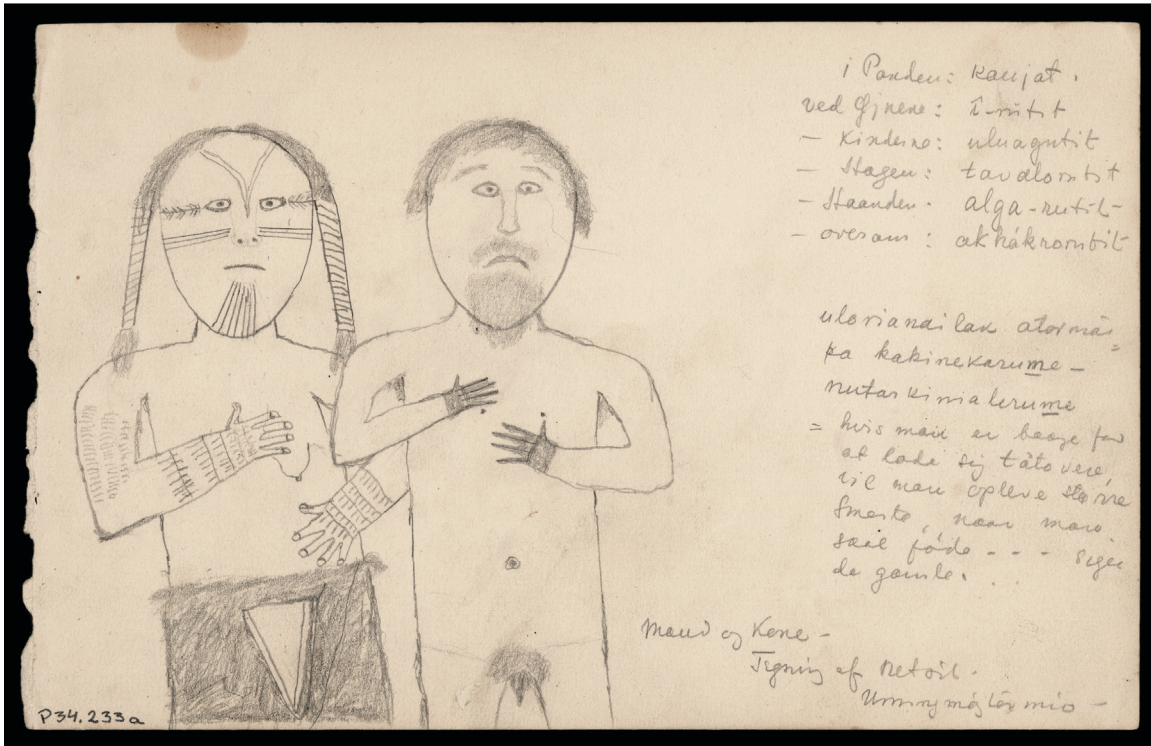 i Panden: kaujat.
ved Øjnene: I-rutit
– Kinderne: uluagutit
– Hagen: tavdlorutit
– Haanden. alga-rutit
– overarm: akhákrorutit
atormái=
ka kakinekarume –
nutarkimalerume
= hvis man er bange for
at lade sig tátovere,
vil man opleve større
Smerte, naar man
skal føde - - - siger
de gamle. . .
Mand og Kone –
Tegning af Netsit.
P34.233a